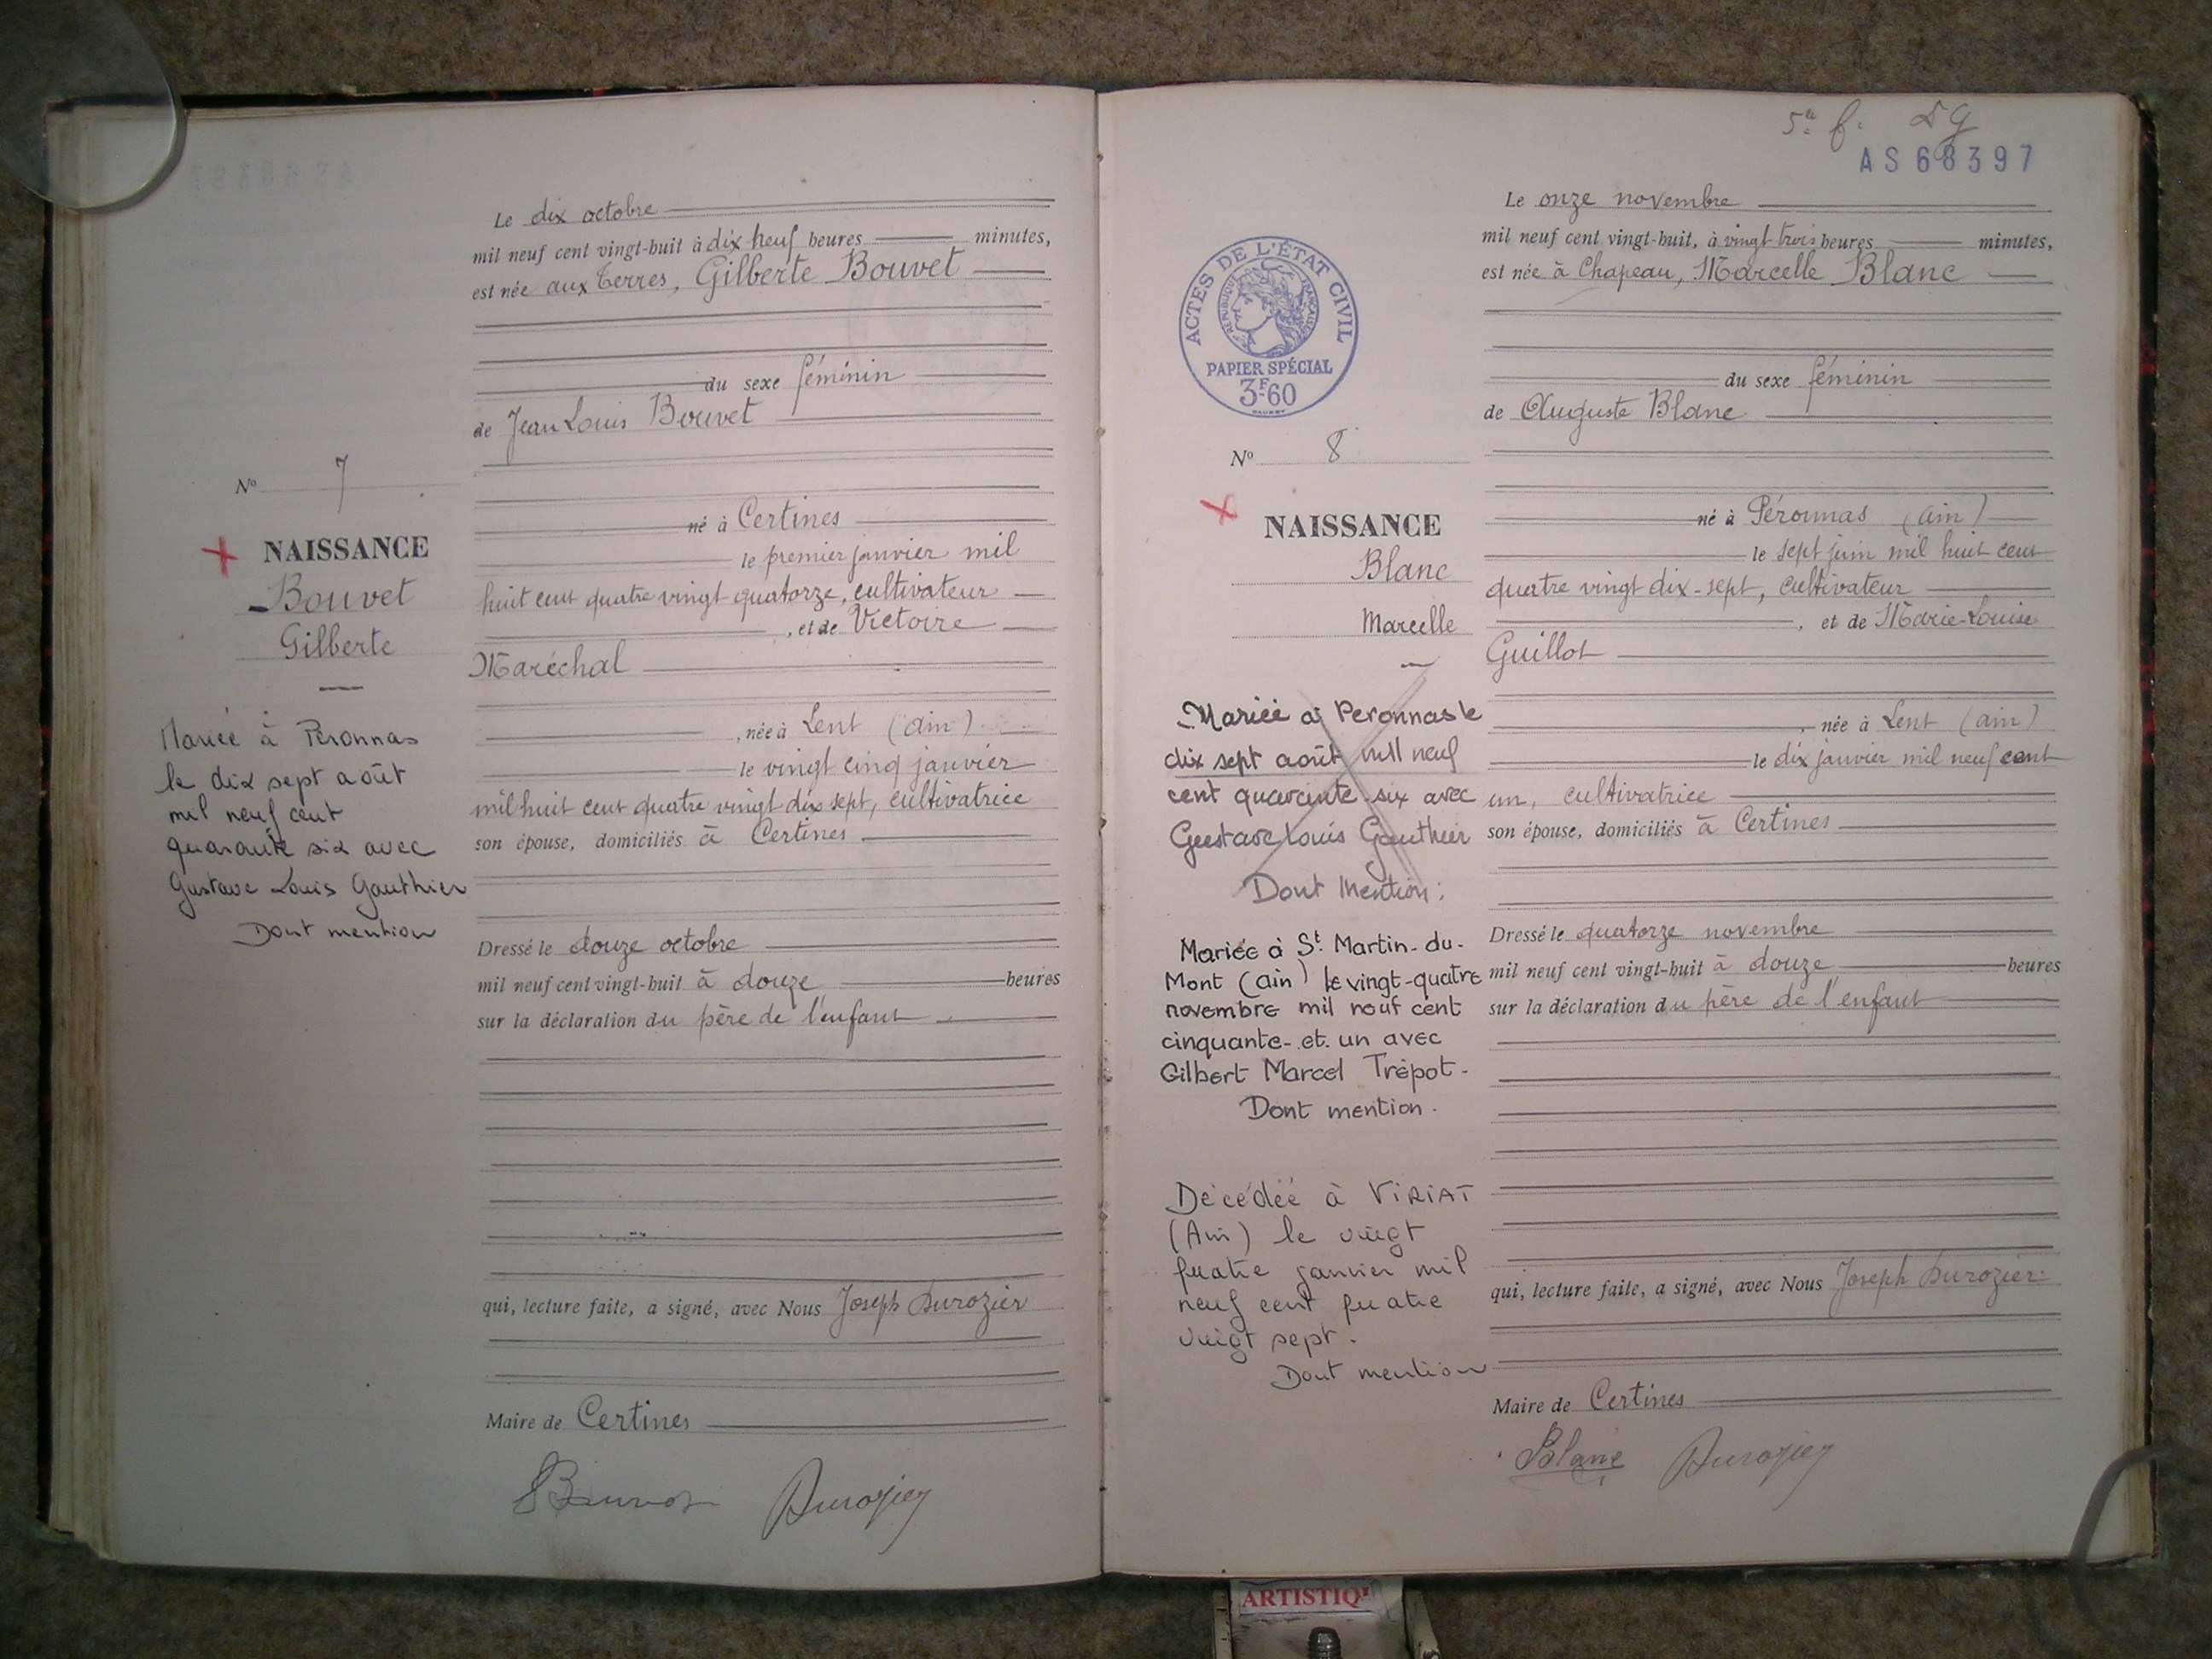 Le dix octobre
mil neuf cent vingt-huit à dix neuf heures minutes,
est née aux Terres, Gilberte Bouvet
du sexe féminin
de Jean Louis Bouvet
né à Certines
le premier janvier mil
huit cent quatre vingt quatorze, cultivateur
, et de Victoire
Maréchal
, née à Lent (Ain)
le vingt cinq janvier
mil huit cent quatre vingt dix sept, cultivatrice
son épouse, domiciliés à Certines
Dressé le douze octobre
mil neuf cent vingt-huit à douze heures
sur la déclaration du père de l'enfant
qui, lecture faite, a signé, avec Nous Joseph Durozier
Maire de Certines
Durozier
No 7
NAISSANCE
Bouvet
Gilberte
Mariée à Péronnas
le dix sept août
mil neuf cent
quarante six avec
Gustave Louis Gauthier
Dont mention
5e f.
AS68397
Le onze novembre
mil neuf cent vingt-huit, à vingt trois heures minutes,
est née à Chapeau, Marcelle Blanc
du sexe féminin
de Auguste Blanc
né à Péronnas (Ain)
le sept juin mil huit cent
quatre vingt dix-sept, cultivateur
, et de Marie-Louise
Guillot
, née à Lent (Ain)
le dix janvier mil neuf cent
un, cultivatrice
son épouse, domiciliés à Certines
Dressé le quatorze novembre
mil neuf cent vingt-huit à douze heures
sur la déclaration du père de l'enfant
qui, lecture faite, a signé, avec Nous Joseph Durozier
Maire de Certines
Blanc Durozier
ACTES DE L'ÉTAT CIVIL
RÉPUBLIQUE FRANÇAISE
PAPIER SPÉCIAL
3F60
No 8
NAISSANCE
Blanc
Marcelle
Mariée à Peronnas le
dix sept août mil neuf
cent quarante-six avec
Gustave Louis Gauthier
Dont Mention:
Mariée à St Martin-du-
Mont (Ain) le vingt-quatre
novembre mil neuf cent
cinquante-et-un avec
Gilbert Marcel Trépot-
Dont mention.
Décédée à VIRIAT
(Ain) le vingt
quatre janvier mil
neuf cent quatre
vingt sept.
Dont mention
ARTISTIQ